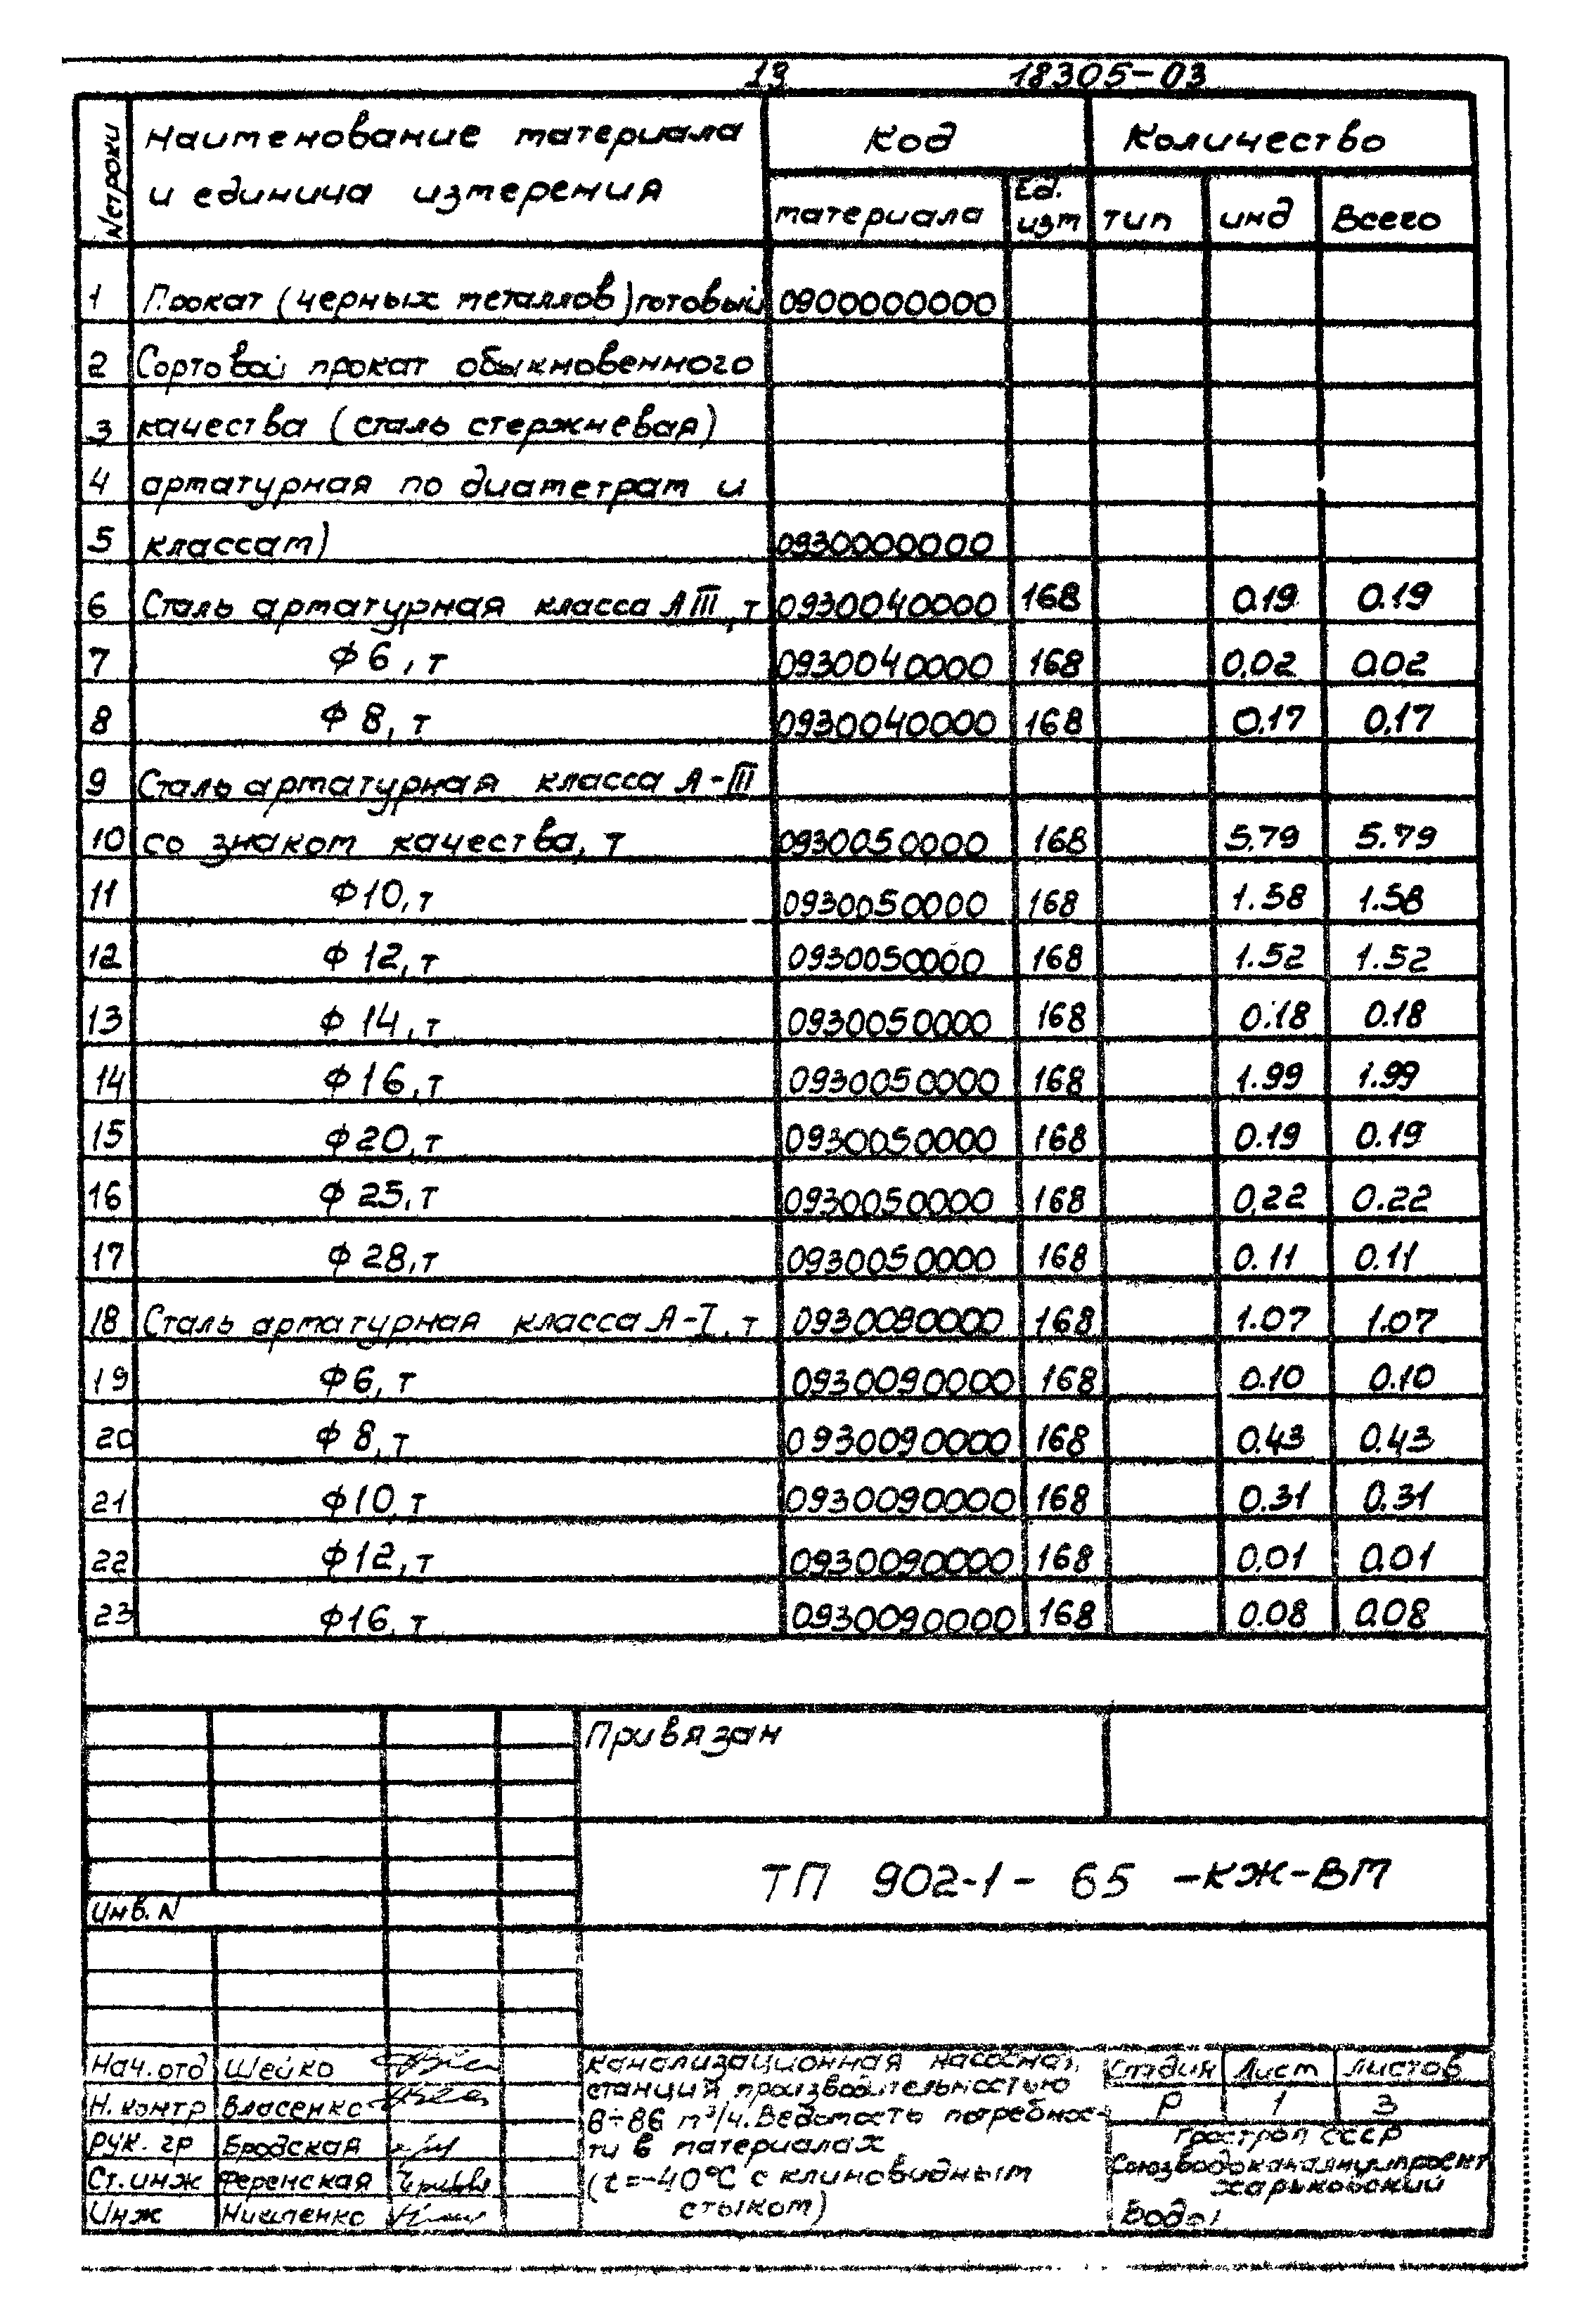 13 18305-03
№ строки Наименование материала и единица измерения Код Количество
материала Ед. изм тип инд Всего
1 Прокат (черных металлов) готовый 0900000000
2 Сортовой прокат обыкновенного
3 качества (сталь стержневая)
4 арматурная по диаметрам и
5 классам) 0930000000
6 Сталь арматурная класса АIII, т 0930040000 168 0.19 0.19
7 Ф6, т 0930040000 168 0.02 0.02
8 Ф 8, т 0930040000 168 0.17 0.17
9 Сталь арматурная класса А-III
10 со знаком качества, т 0930050000 168 5.79 5.79
11 Ф10, т 0930050000 168 1.58 1.58
12 Ф 12, т 0930050000 168 1.52 1.52
13 Ф 14, т 0930050000 168 0.18 0.18
14 Ф 16, т 0930050000 168 1.99 1.99
15 Ф20, т 0930050000 168 0.19 0.19
16 Ф 25, т 0930050000 168 0.22 0.22
17 Ф 28, т 0930050000 168 0.11 0.11
18 Сталь арматурная класса А-I, т 0930090000 168 1.07 1.07
19 Ф6, т 0930090000 168 0.10 0.10
20 Ф 8, т 0930090000 168 0.43 0.43
21 Ф10, т 0930090000 168 0.31 0.31
22 Ф12, т 0930090000 168 0.01 0.01
23 Ф16, т 0930090000 168 0.08 0.08
Привязан
ТП 902-1-65-КЖ-ВМ
Инв. N
Нач. отд Шейко
Н. контр Власенко
Рук. гр Бродская
Ст. инж Ференская
Инж
Канализационная насосная
станция производительностью
8÷86 м³/ч. Ведомость потребнос-
ти в материалах
(t=-40°С с клиновидным
стыком)
Стадия Лист Листов
Р 1 3
Госстрой СССР
Союзводоканалниипроект
Харьковский